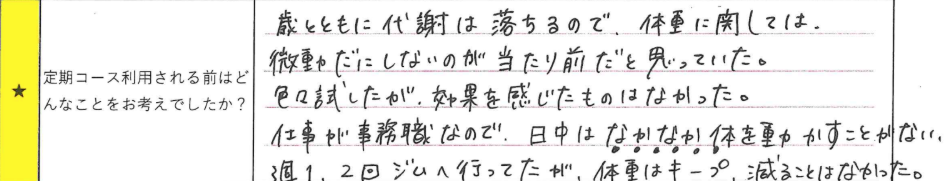 ★
定期コース利用される前はど
んなことをお考えでしたか？
歳とともに代謝は落ちるので、体重に関しては、
微動だにしないのが当たり前だと思っていた。
色々試したが、効果を感じたものはなかった。
仕事が事務職なので、日中はなかなか体を動かすことがない、
週1、2回ジムへ行ってたが、体重はキープ、減ることはなかった。